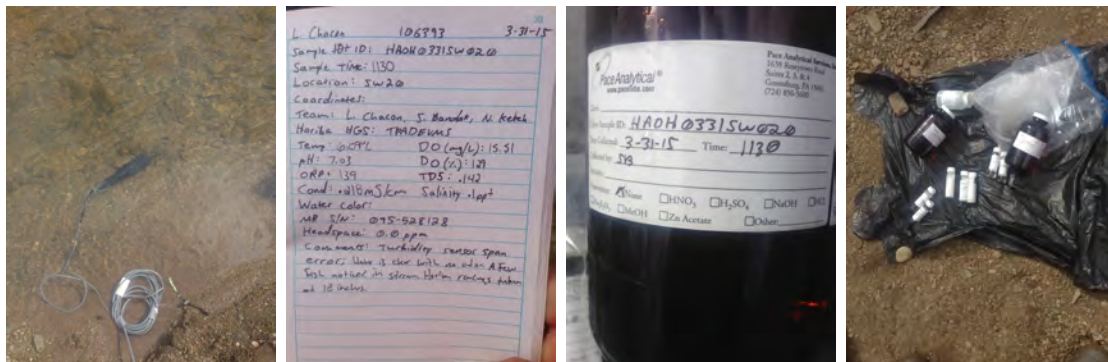 L Chacon 106393 3-31-15
Sample ID: HAOH0331SW020
Sample Time: 1130
Location: SW20
Coordinates:
Team: L. Chacon, S. N. Ketch
Horiba
Temp: DO (mg/L): 15.51
pH: 7.03 DO (%): 129
ORP: 139 TDS: .142
Cond: .218 mS/cm Salinity .1 ppt
Water color:
MR S/N: 095-528128
Headspace: 0.0 ppm
Comments: Turbidity sensor span
error. is clear with no odor A few
fish noticed in stream Horiba readings taken
at 18 inches
Pace Analytical®
www.pacelabs.com
Pace Analytical Services,
1638 Roseytown Road
Suites 2, 3, & 4
Greensburg, PA 15601
(724) 850-5600
Sample ID: HAOH0331SW020
Collected: 3-31-15 Time: 1130
None HNO3 H2SO4 NaOH HCl
MeOH Zn Acetate Other: